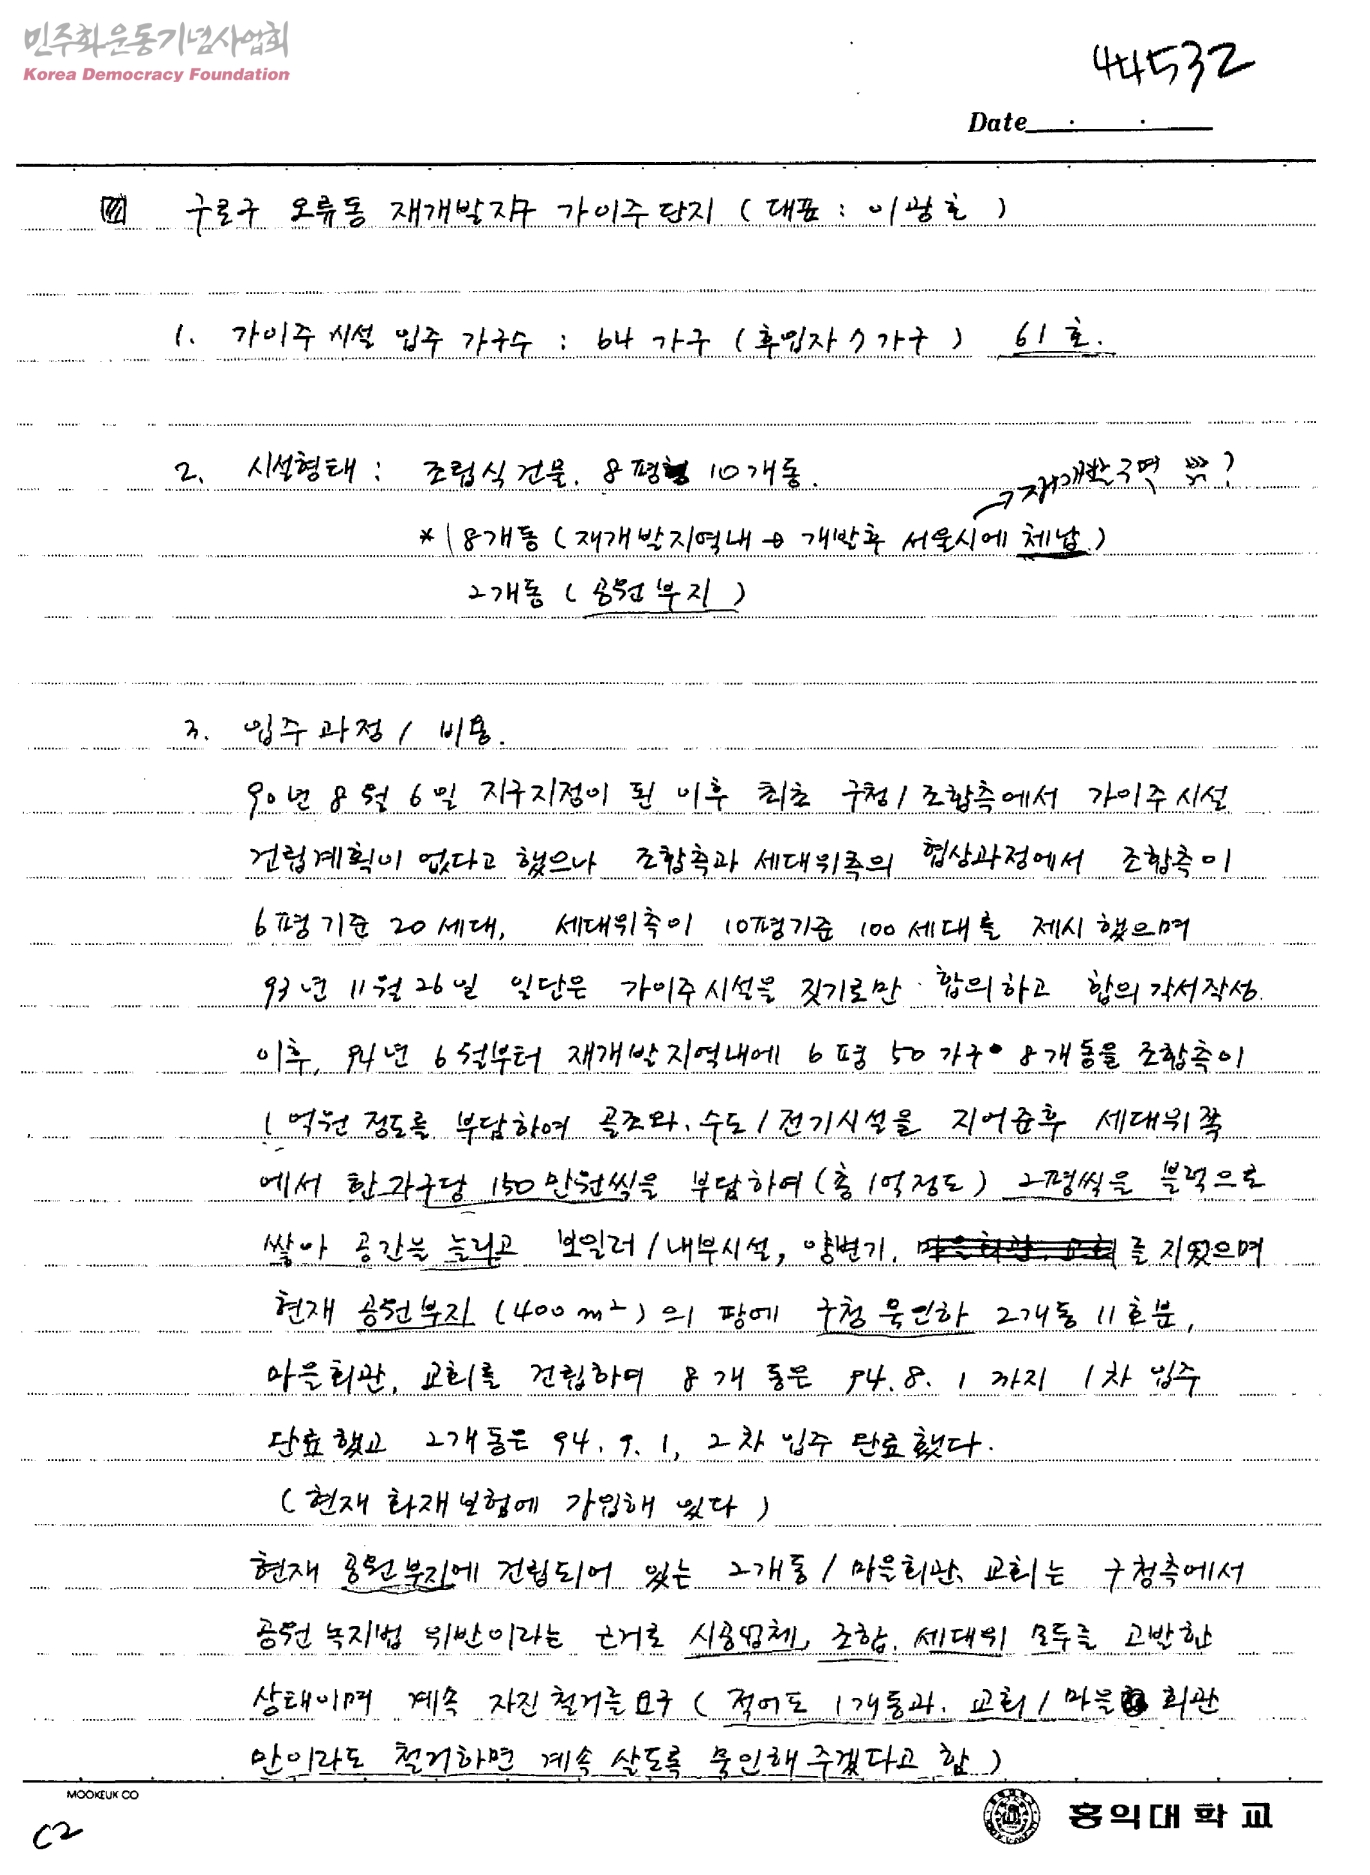 민주화운동기념사업회
Korea Democracy Foundation
44532
Date . .
구로구 오류동 재개발지구 가이주단지 ( 대표 : 이광호 )
1. 가이주시설 입주 가구수 : 64 가구 ( 후입자 가구 ) 61호.
2. 시설형태 : 조립식 건물. 8평 10개동.
→ 재개발 구역 ?
* 8개동 ( 재개발지역내 → 개발후 서울시에 체납 )
2개동 ( 공원부지 )
3. 입주과정 / 비용.
90년 8월 6일 지구지정이 된 이후 최초 구청/조합측에서 가이주시설
건립계획이 없다고 했으나 조합측과 세대위측의 협상과정에서 조합측이
6평기준 20세대, 세대위측이 10평기준 100세대를 제시했으며
93년 11월 26일 일단은 가이주시설을 짓기로만 합의하고 합의각서작성
이후, 94년 6월부터 재개발지역내에 6평 50가구 8개동을 조합측이
1억원 정도를 부담하여 골조와, 수도/전기시설을 지어준후 세대위쪽
에서 한가구당 150만원씩을 부담하여 (총 1억정도) 2평씩을 블럭으로
쌓아 공간을 늘리고 보일러/내부시설, 양변기, 마을회관, 교회를 지었으며
현재 공원부지 (400m²)의 땅에 구청 묵인하 2개동 11호분,
마을회관, 교회를 건립하여 8개 동은 94.8.1 까지 1차 입주
완료했고 2개동은 94.9.1, 2차 입주 완료했다.
( 현재 화재보험에 가입해 있다 )
현재 공원부지에 건립되어 있는 2개동/마을회관, 교회는 구청측에서
공원녹지법 위반이라는 근거로 시공업체, 조합, 세대위 모두를 고발한
상태이며 계속 자진철거를 요구 ( 적어도 1개동과, 교회/마을 회관
만이라도 철거하면 계속 살도록 묵인해 주겠다고 함 )
MOOKEUK CO
홍익대학교
C2